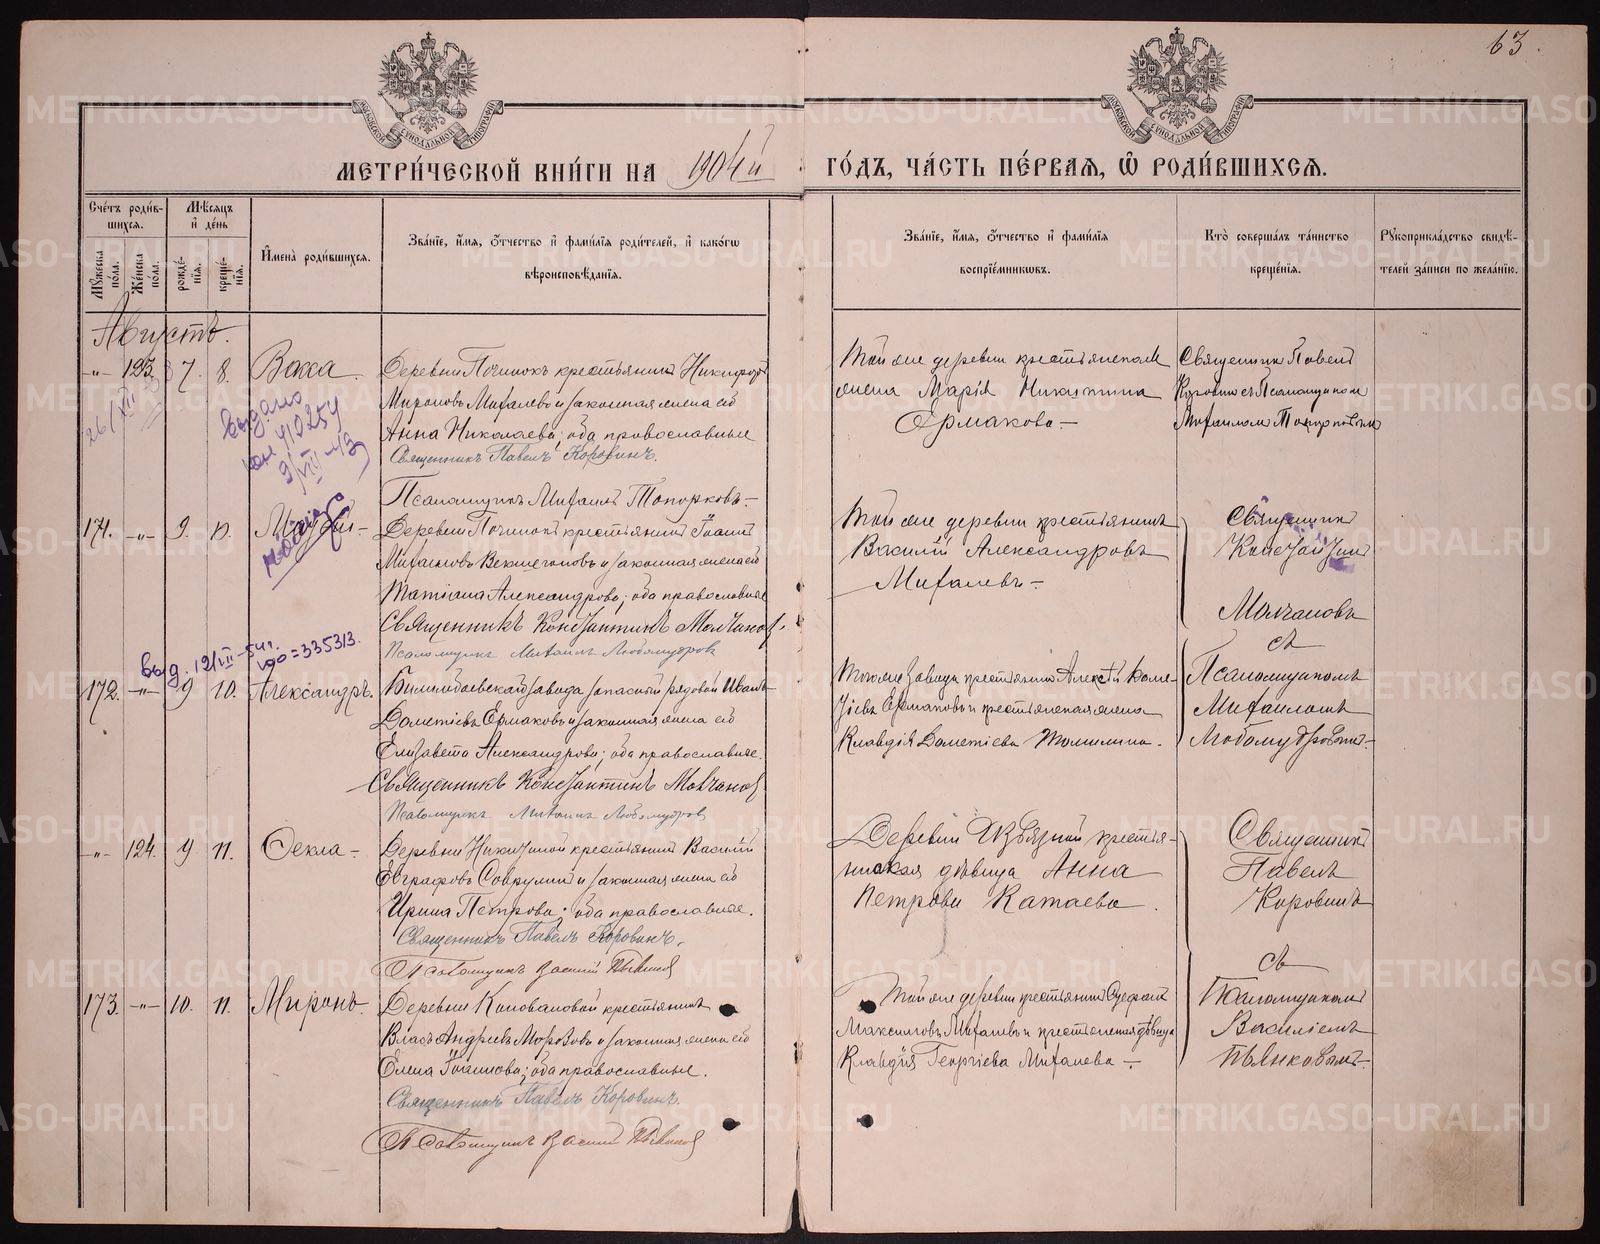 63.
МЕТРИ́ЧЕСКОЙ КНИ́ГИ НА 1904й ГО́ДЪ, ЧА́СТЬ ПЕ́РВАЯ, Ѡ РОДИ́ВШИХСЯ.
Сче́тъ роди́в-
шихся.
Му́жеска по́ла.
Же́нска по́ла.
Мѣ́сяцъ
и҆ де́нь
рожде́-
нїя.
креще́-
нїя.
И҆мена̀ роди́вшихся.
Зва́нїе, и҆́мя, ѻ҆́тчество и҆ фами́лїя роди́телей, и҆ како́гѡ
вѣроисповѣ́данїя.
Зва́нїе, и҆́мя, ѻ҆́тчество и҆ фами́лїя
воспрїе́мниковъ.
Кто̀ соверша́лъ та́инство
креще́нїя.
Рꙋкоприкла́дство свидѣ́-
телей за́писи по жела́нїю.
Августъ.
-"- 123. 7. 8. Васса.
Деревни Починокъ крестьянинъ Никифоръ
Мироновъ Михалевъ и законная жена его
Анна Николаева; оба православные
Священникъ Павелъ Коровинъ.
Псаломщикъ Михаилъ Топорковъ.-
Той же деревни крестьянская
жена Марія Никитина
Ермакова -
Священник Павел
Коровин съ Псаломщиком
Михаилом Топорковым
выдано
9/VIII-43
171. -"- 9. 11. Матѳій -
Деревни Починокъ крестьянинъ Іоаннъ
Михаиловъ Векшегоновъ и законная жена его
Татіана Александрова; оба православные
Священникъ Константинъ Молчановъ.
Псаломщикъ Михаилъ Любомудровъ
Той же деревни крестьянинъ
Василій Александровъ
Михалевъ -
Священник
Константин
Молчановъ
съ
Псаломщикомъ
Михаиломъ
Любомудровымъ.-
выд. 12/VII-54г.
№о=335313.
172. -"- 9 10. Александръ.
Билимбаевскаго завода запасный рядовой Иванъ
Дометіевъ Ермаковъ и законная жена его
Елизавета Александрова; оба православные.
Священникъ Константинъ Молчановъ
Псаломщикъ Михаилъ Любомудровъ
Того же завода крестьянинъ Алексѣй Доме-
тіевъ Ермаковъ и крестьянская жена
Клавдія Дометіева Томилина.
-"- 124. 9 11. Ѳекла -
Деревни Никитиной крестьянинъ Василій
Евграфовъ Соврулинъ и законная жена его
Ирина Петрова; оба православные.
Священникъ Павелъ Коровинъ.
Псаломщикъ Василій Пьянков
Деревни Извязной крестья-
нская дѣвица Анна
Петрова Катаева.
Священник
Павелъ
Коровинъ
съ
Псаломщиком
Василіемъ
Пьянковымъ.-
173. -"- 10. 11. Миронъ.
Деревни Коноваловой крестьянинъ
Власъ Андреевъ Морозовъ и законная жена его
Елена Іоаннова; оба православные.
Священникъ Павелъ Коровинъ.
Псаломщикъ Василій Пьянков
Той же деревни крестьянин Стефанъ
Максимовъ Михалевъ и крестьянская дѣвица
Клавдія Георгіева Михалева -.
METRIKI.GASO-URAL.RU